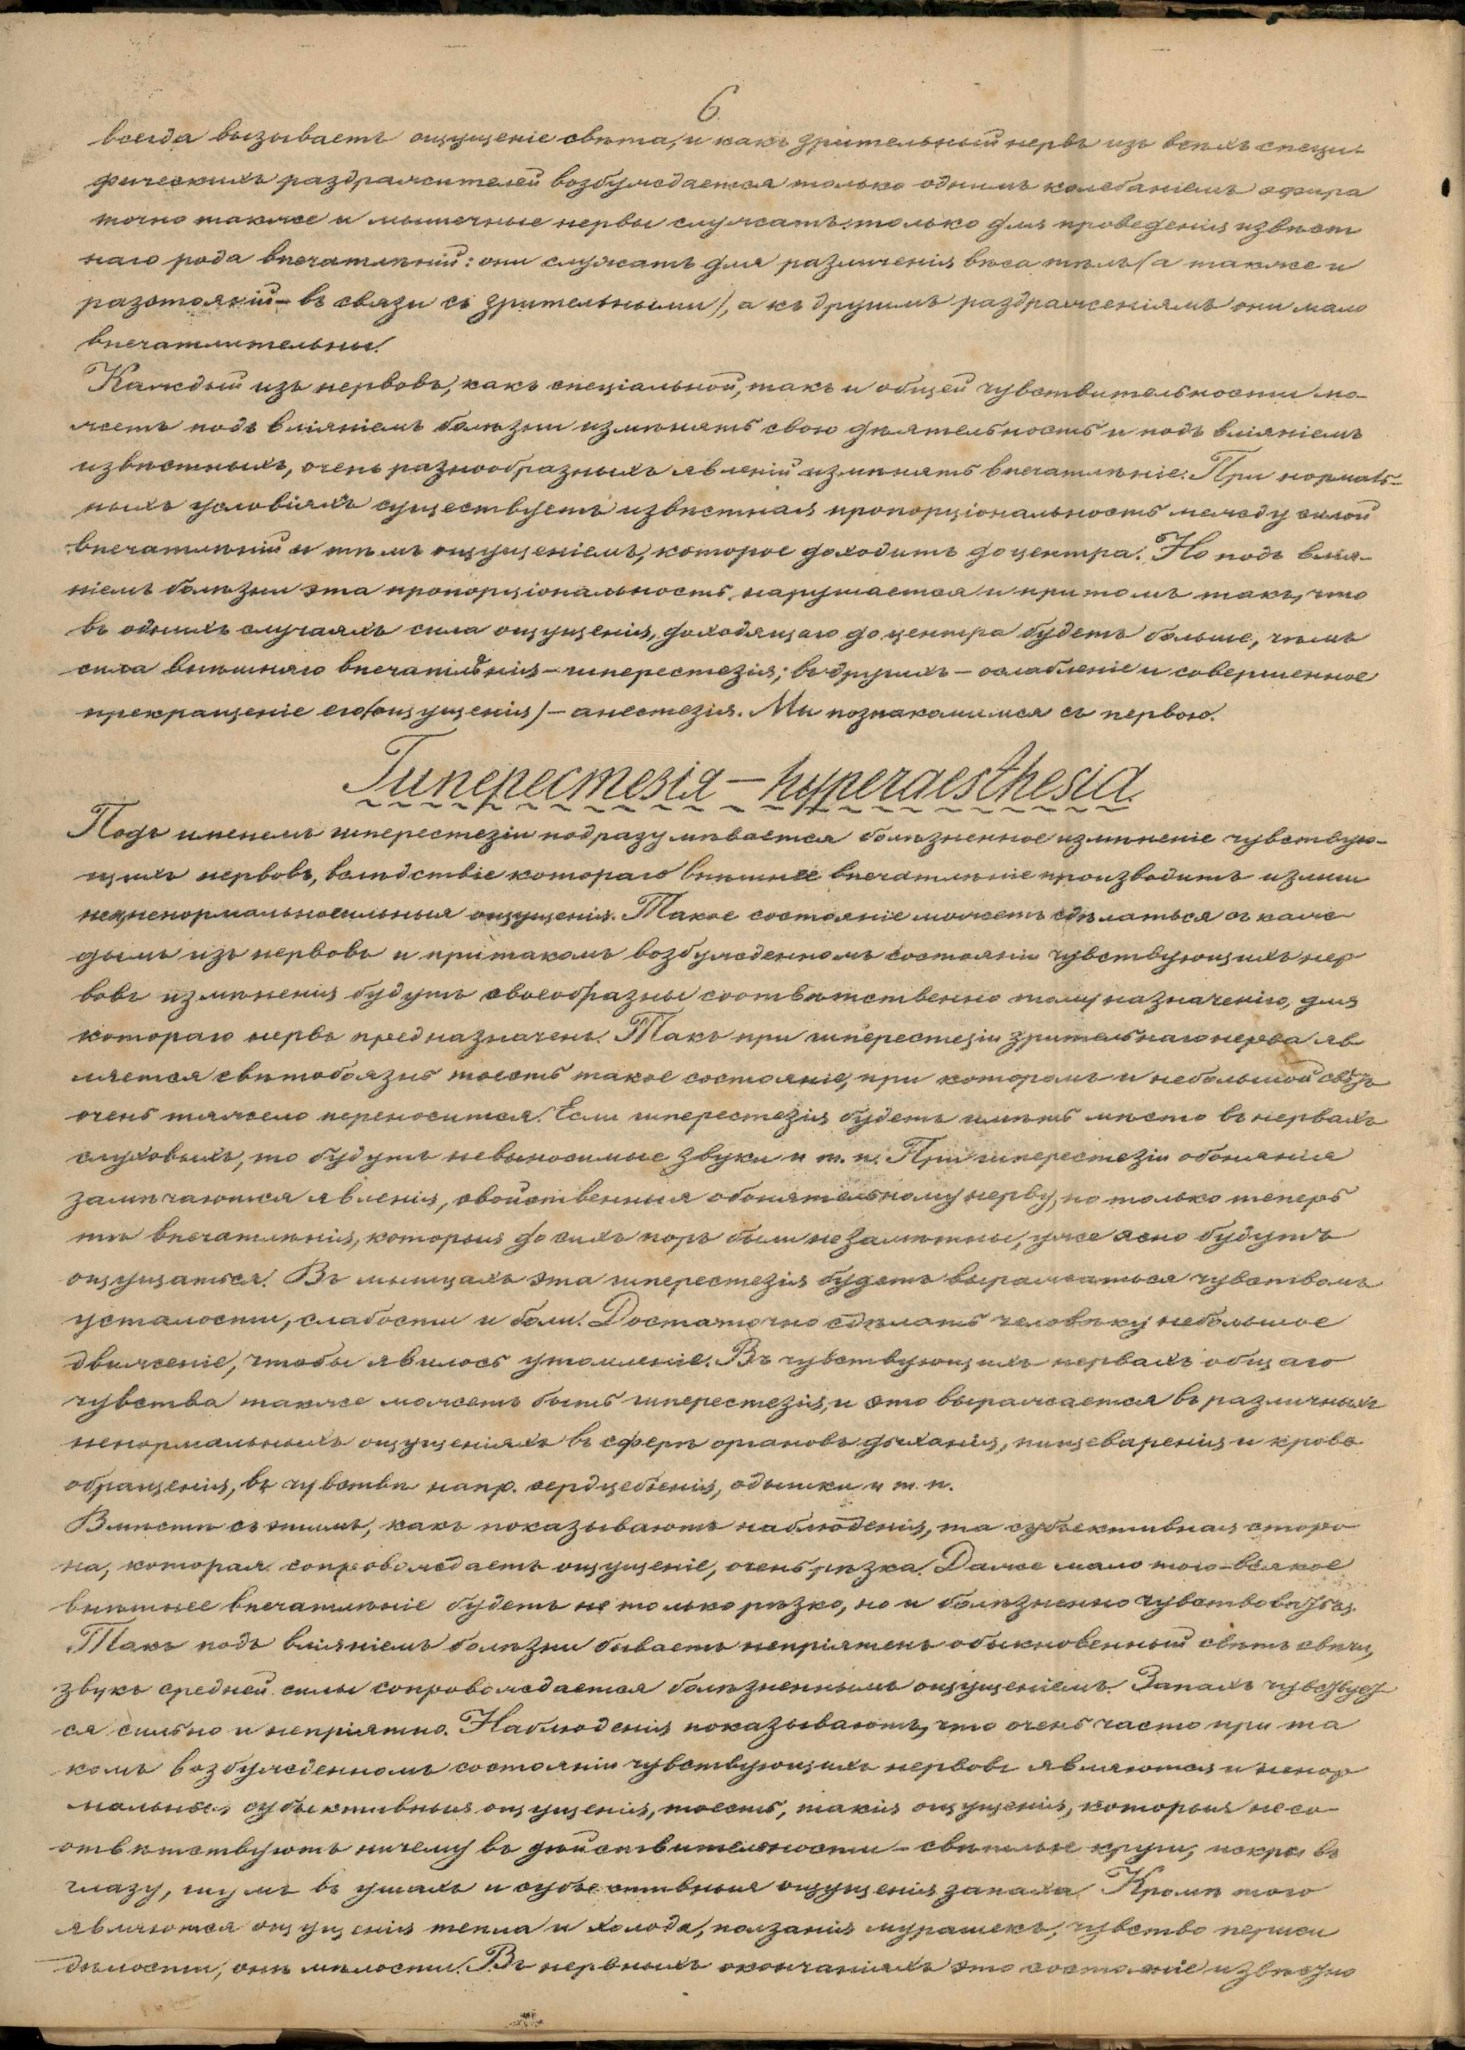 6
всегда вызываетъ ощущеніе свѣта, и какъ зрительный нервъ изъ всѣхъ специ-
фическихъ раздражителей возбуждается только однимъ колебаніемъ эфира
точно также и мышечные нервы служатъ только для проведенія извѣст
наго рода впечатлѣній: они служатъ для различенія вѣса тѣлъ (а также и
разстояній – въ связи съ зрительными), а къ другимъ раздраженіямъ они мало
впечатлительны.
Каждый изъ нервовъ, какъ спеціальной, такъ и общей чувствительности мо-
жетъ подъ вліяніемъ болѣзни измѣнять свою дѣятельность и подъ вліяніемъ
извѣстныхъ, очень разнообразныхъ явленій измѣнять впечатлѣніе. При нормаль-
ныхъ условіяхъ существуетъ извѣстная пропорціональность между силой
впечатлѣній и тѣмъ ощущеніемъ, которое доходитъ до центра. Но подъ влія-
ніемъ болѣзни эта пропорціональность нарушается и притомъ такъ, что
въ однихъ случаяхъ сила ощущенія, доходящаго до центра будетъ больше, чѣмъ
сила внѣшняго впечатлѣнія – гиперестезія; въ другихъ – ослабленіе и совершенное
прекращеніе его (ощущенія) – анестезія. Мы познакомимся съ первою.
Гиперестезія – hyperaesthesia.
Подъ именемъ гиперестезіи подразумѣвается болѣзненное измѣненіе чувствую-
щихъ нервовъ, вслѣдствіе котораго внѣшнее впечатлѣніе производитъ излиш
не ненормальносильныя ощущенія. Такое состояніе можетъ сдѣлаться съ каж
дымъ изъ нервовъ и при такомъ возбужденномъ состояніи чувствующихъ нер
вовъ измѣненія будутъ своеобразны соотвѣтственно тому назначенію, для
котораго нервъ предназначенъ. Такъ при гиперестезіи зрительнаго нерва яв
ляется свѣтобоязнь тоесть такое состояніе, при которомъ и небольшой свѣтъ
очень тяжело переносится. Если гиперестезія будетъ имѣть мѣсто въ нервахъ
слуховыхъ, то будутъ невыносимые звуки и т. п. При гиперестезіи обонянія
замѣчаются явленія, свойственныя обонятельному нерву, но только теперь
тѣ впечатлѣнія, которыя до сихъ поръ были незамѣтны, уже ясно будутъ
ощущаться. Въ мышцахъ эта гиперестезія будетъ выражаться чувствомъ
усталости, слабости и боли. Достаточно сдѣлать человѣку небольшое
движеніе, чтобы явилось утомленіе. Въ чувствующихъ нервахъ общаго
чувства также можетъ быть гиперестезія, и это выражается въ различныхъ
ненормальныхъ ощущеніяхъ въ сферѣ органовъ дыханія, пищеваренія и крово
обращенія, въ чувствѣ напр. сердцебіенія, одышки и т. п.
Вмѣстѣ съ этимъ, какъ показываютъ наблюденія, та субъективная сторо
на, которая сопровождаетъ ощущеніе, очень рѣзка. Даже мало того – всякое
внѣшнее впечатлѣніе будетъ не только рѣзко, но и болѣзненно чувствоваться.
Такъ подъ вліяніемъ болѣзни бываетъ непріятенъ обыкновенный свѣтъ свѣчи,
звукъ средней силы сопровождается болѣзненнымъ ощущеніемъ. Запахъ чувствует
ся сильно и непріятно. Наблюденія показываютъ, что очень часто при та
комъ возбужденномъ состояніи чувствующихъ нервовъ являются и ненор
мальныя субъективныя ощущенія, тоесть, такія ощущенія, которыя не со-
отвѣтствуютъ ничему въ дѣйствительности – свѣтлые круги, искры въ
глазу, шумъ въ ушахъ и субъективныя ощущенія запаха. Кромѣ того
являются ощущенія тепла и холода, ползанія мурашекъ, чувство
онѣмѣлости. Въ нервныхъ окончаніяхъ это состояніе извѣстно